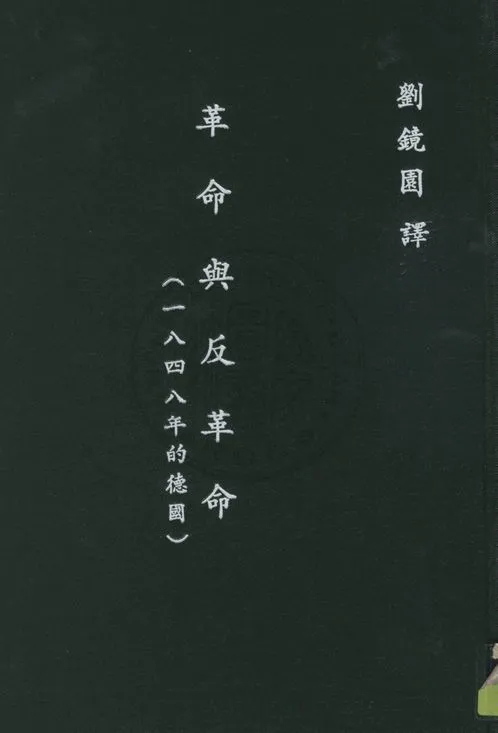 劉鏡園譯
革命與反革命
(一八四八年的德國)